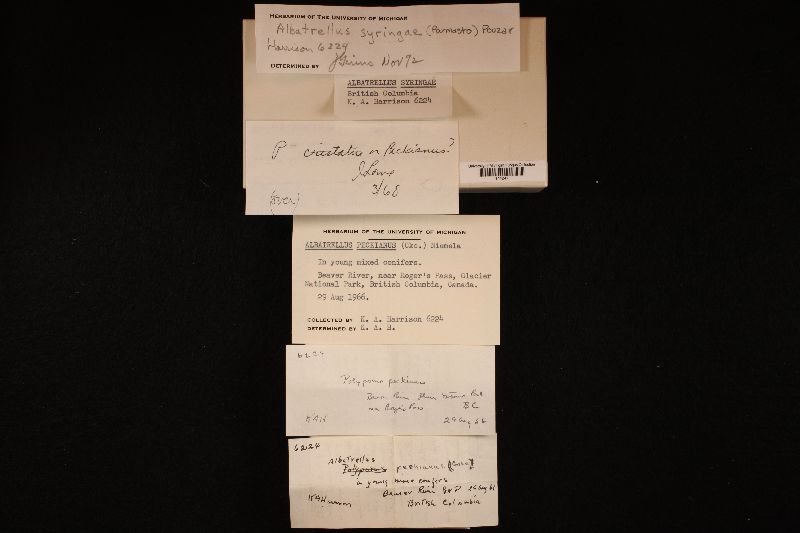 HERBARIUM OF THE UNIVERSITY OF MICHIGAN
Albatrellus syringae (Parmasto) Pouzar
Harrison 6224
DETERMINED BY JGinns Nov 92
ALBATRELLUS SYRINGAE
British Columbia
K. A. Harrison 6224
P cristatus or Peckianus?
JLowe
3/68
(over)
HERBARIUM OF THE UNIVERSITY OF MICHIGAN
ALBATRELLUS PECKIANUS (Cke.) Niemela
In young mixed conifers.
Beaver River, near Roger's Pass, Glacier
National Park, British Columbia, Canada.
29 Aug 1966.
COLLECTED BY K. A. Harrison 6224
DETERMINED BY K. A. H.
6224
Polyporus peckianus
near Rogers Pass BC
KAH 29 Aug 66
6224
Albatrellus
Polyporus peckianus (Cooke)
in young mixed conifers
Beaver River 29 Aug 66
KAHarrison British Columbia